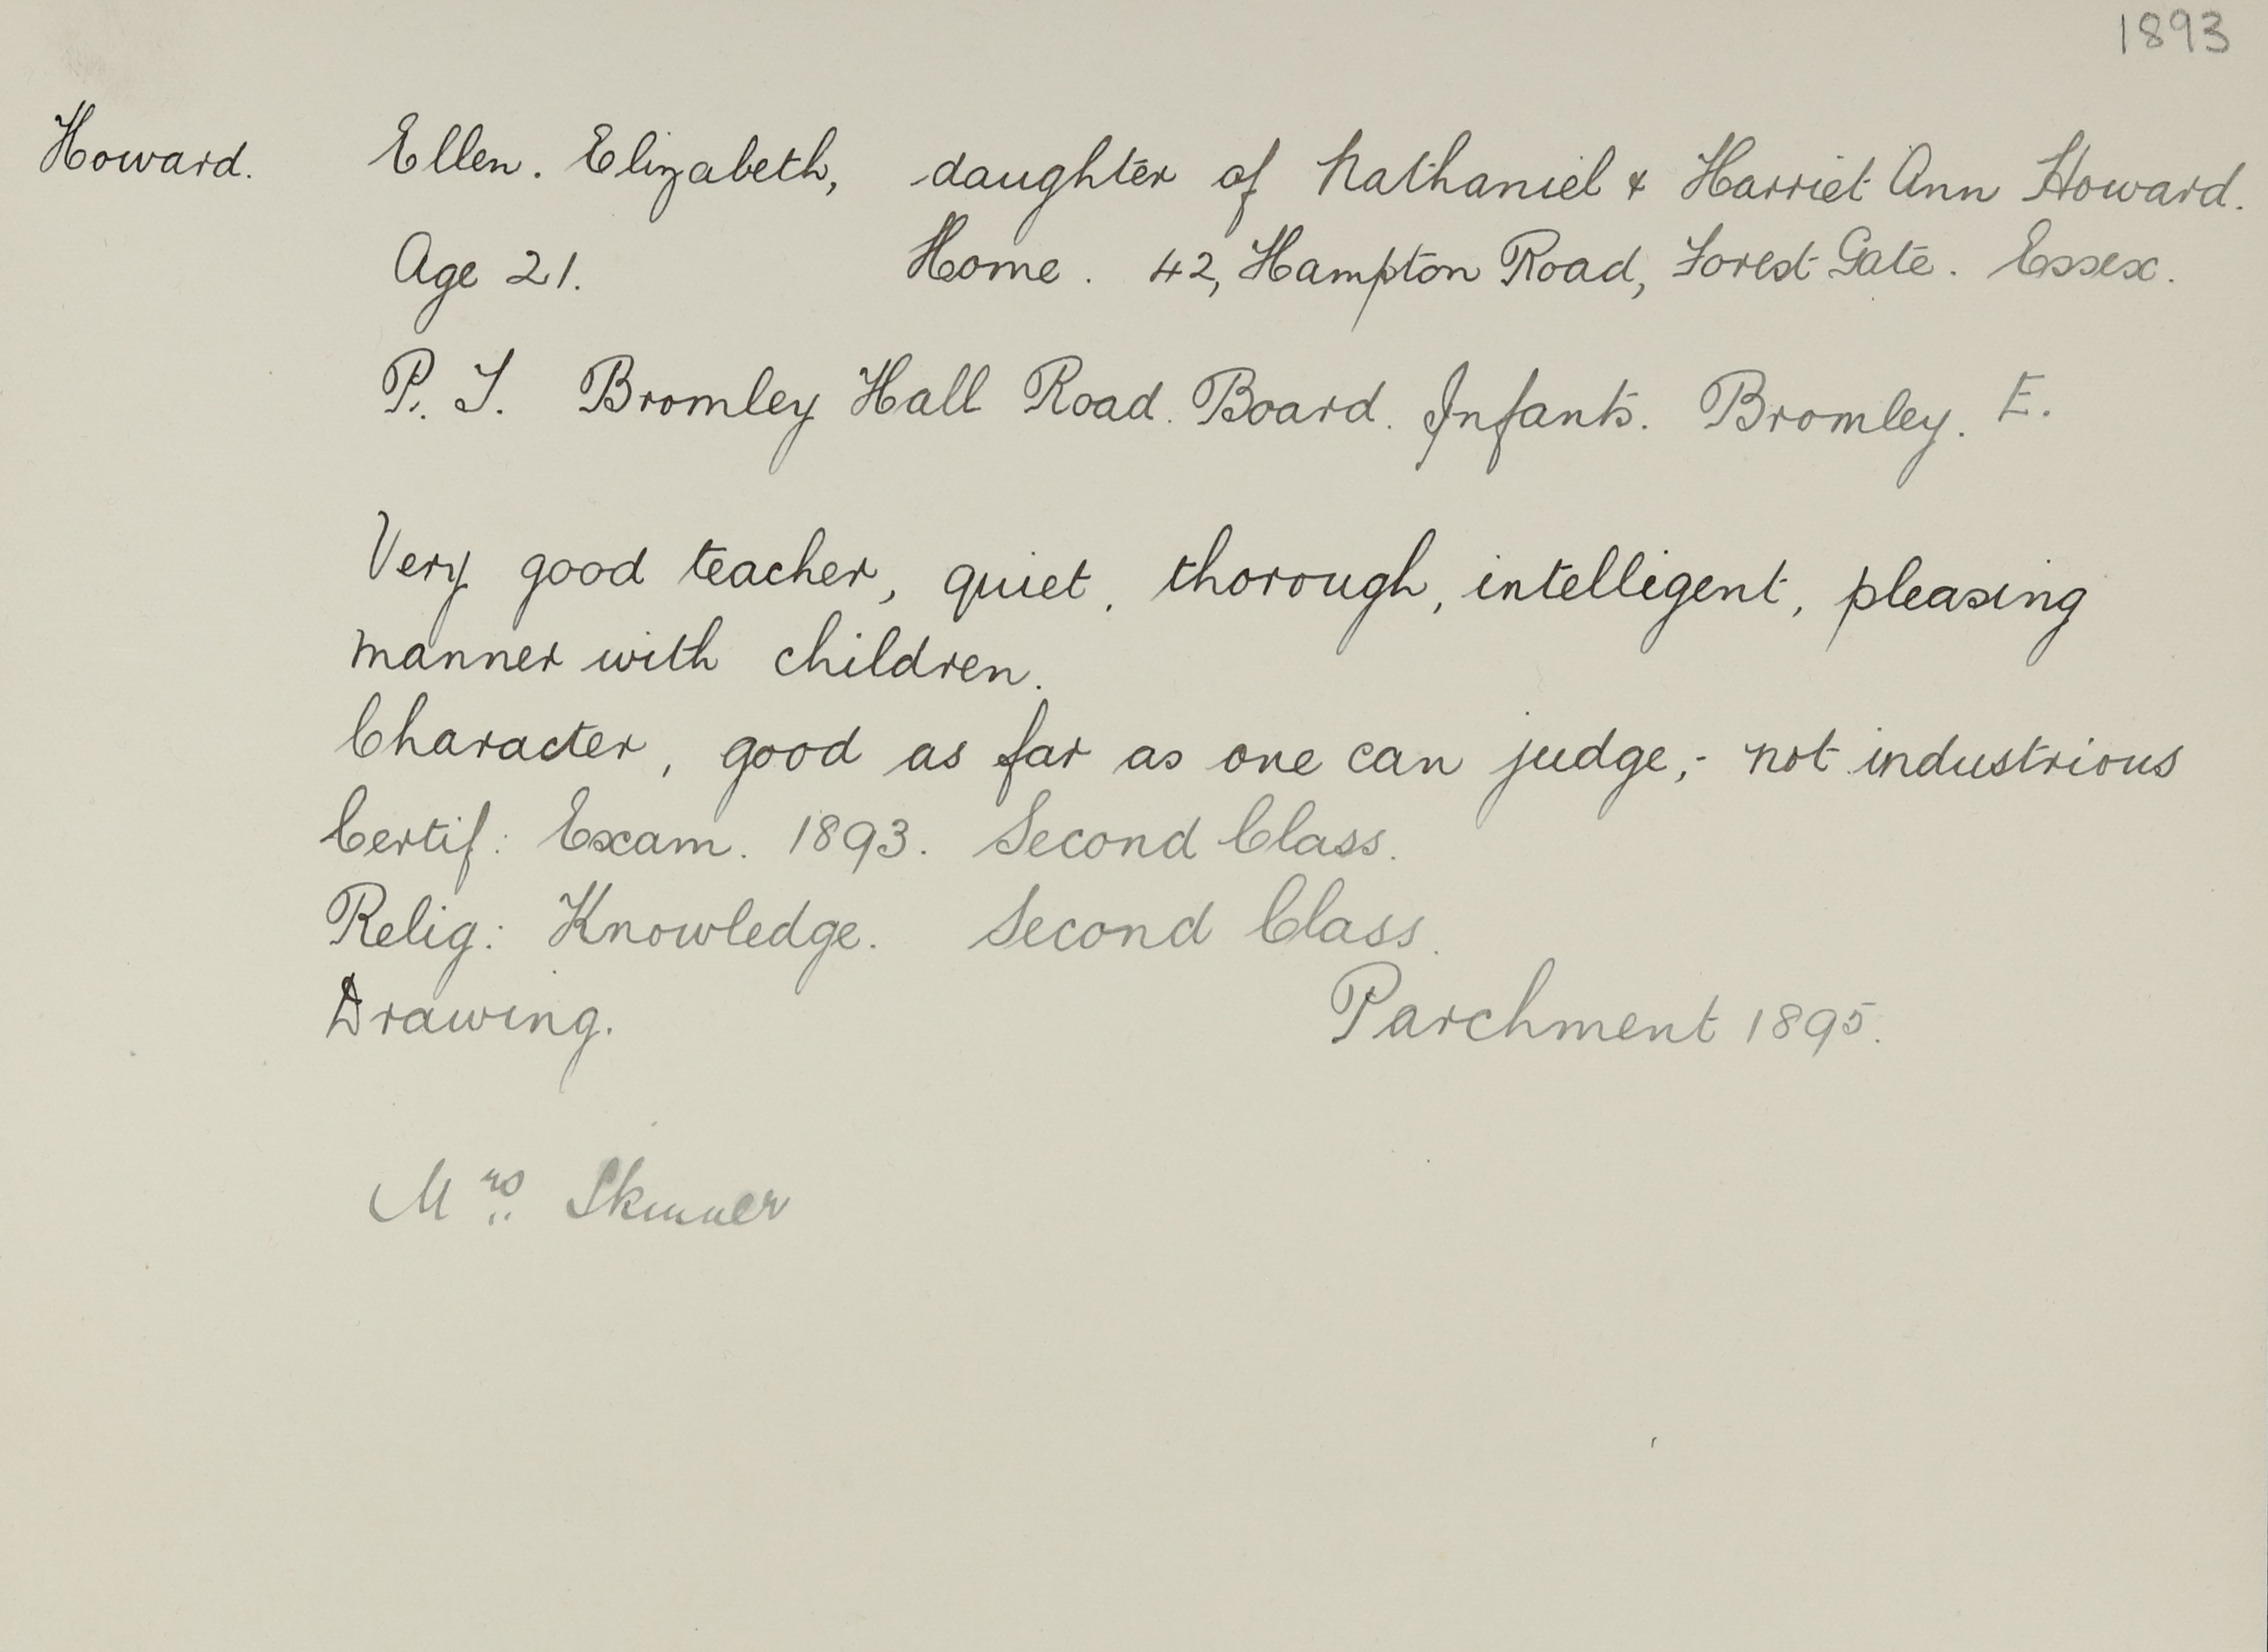 1893
Howard. Ellen. Elizabeth, daughter of Nathaniel & Harriet Ann Howard.
Age 21. Home. 42, Hampton Road, Forest Gate. Essex.
P. T. Bromley Hall Road. Board. Infants. Bromley. E.
Very good teacher, quiet, thorough, intelligent, pleasing
manner with children.
Character, good as far as one can judge,- not industrious
Certif: Exam. 1893. Second Class.
Relig: Knowledge. Second Class.
Drawing. Parchment 1895.
Mrs Skinner